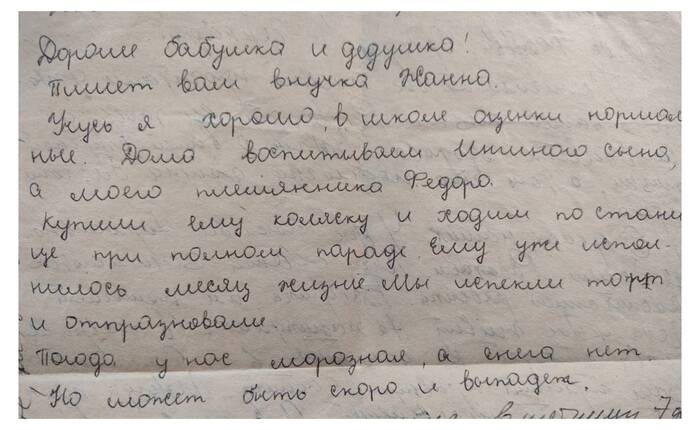 Дорогие бабушка и дедушка!
Пишет вам внучка Жанна.
Учусь я хорошо, в школе оценки нормаль
ные. Дома воспитываем Ининого сына,
а моего племянника Федора.
Купили ему коляску и ходим по стани
це при полном параде. Ему уже испол-
нилось месяц жизни. Мы испекли торт
и отпразновали.
Погода у нас морозная, а снега нет.
Но может быть скоро и выпадет.